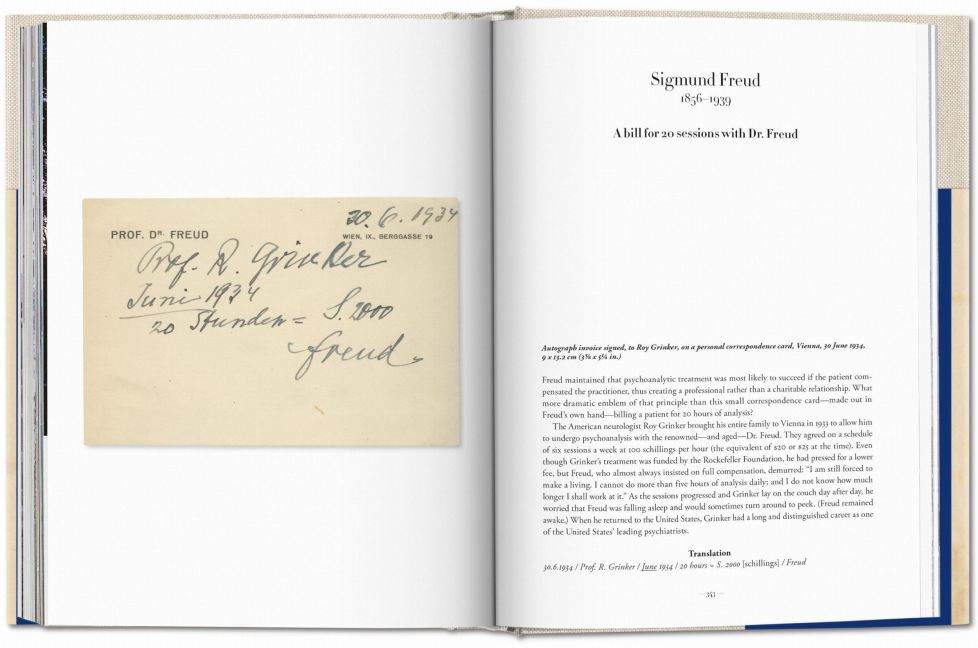 30. 6. 1934
PROF. DR. FREUD
WIEN, IX., BERGGASSE 19
Prof. R. Grinker
Juni 1934
20 Stunden = S. 2000
Freud
Sigmund Freud
1856–1939
A bill for 20 sessions with Dr. Freud
Autograph invoice signed, to Roy Grinker, on a personal correspondence card, Vienna, 30 June 1934,
9 x 13.2 cm (3⅝ x 5¼ in.)
Freud maintained that psychoanalytic treatment was most likely to succeed if the patient com-
pensated the practitioner, thus creating a professional rather than a charitable relationship. What
more dramatic emblem of that principle than this small correspondence card—made out in
Freud's own hand—billing a patient for 20 hours of analysis?
The American neurologist Roy Grinker brought his entire family to Vienna in 1933 to allow him
to undergo psychoanalysis with the renowned—and aged—Dr. Freud. They agreed on a schedule
of six sessions a week at 100 schillings per hour (the equivalent of $20 or $25 at the time). Even
though Grinker's treatment was funded by the Rockefeller Foundation, he had pressed for a lower
fee, but Freud, who almost always insisted on full compensation, demurred: "I am still forced to
make a living. I cannot do more than five hours of analysis daily; and I do not know how much
longer I shall work at it." As the sessions progressed and Grinker lay on the couch day after day, he
worried that Freud was falling asleep and would sometimes turn around to peek. (Freud remained
awake.) When he returned to the United States, Grinker had a long and distinguished career as one
of the United States' leading psychiatrists.
Translation
30.6.1934 / Prof. R. Grinker / June 1934 / 20 hours = S. 2000 [schillings] / Freud
—343—